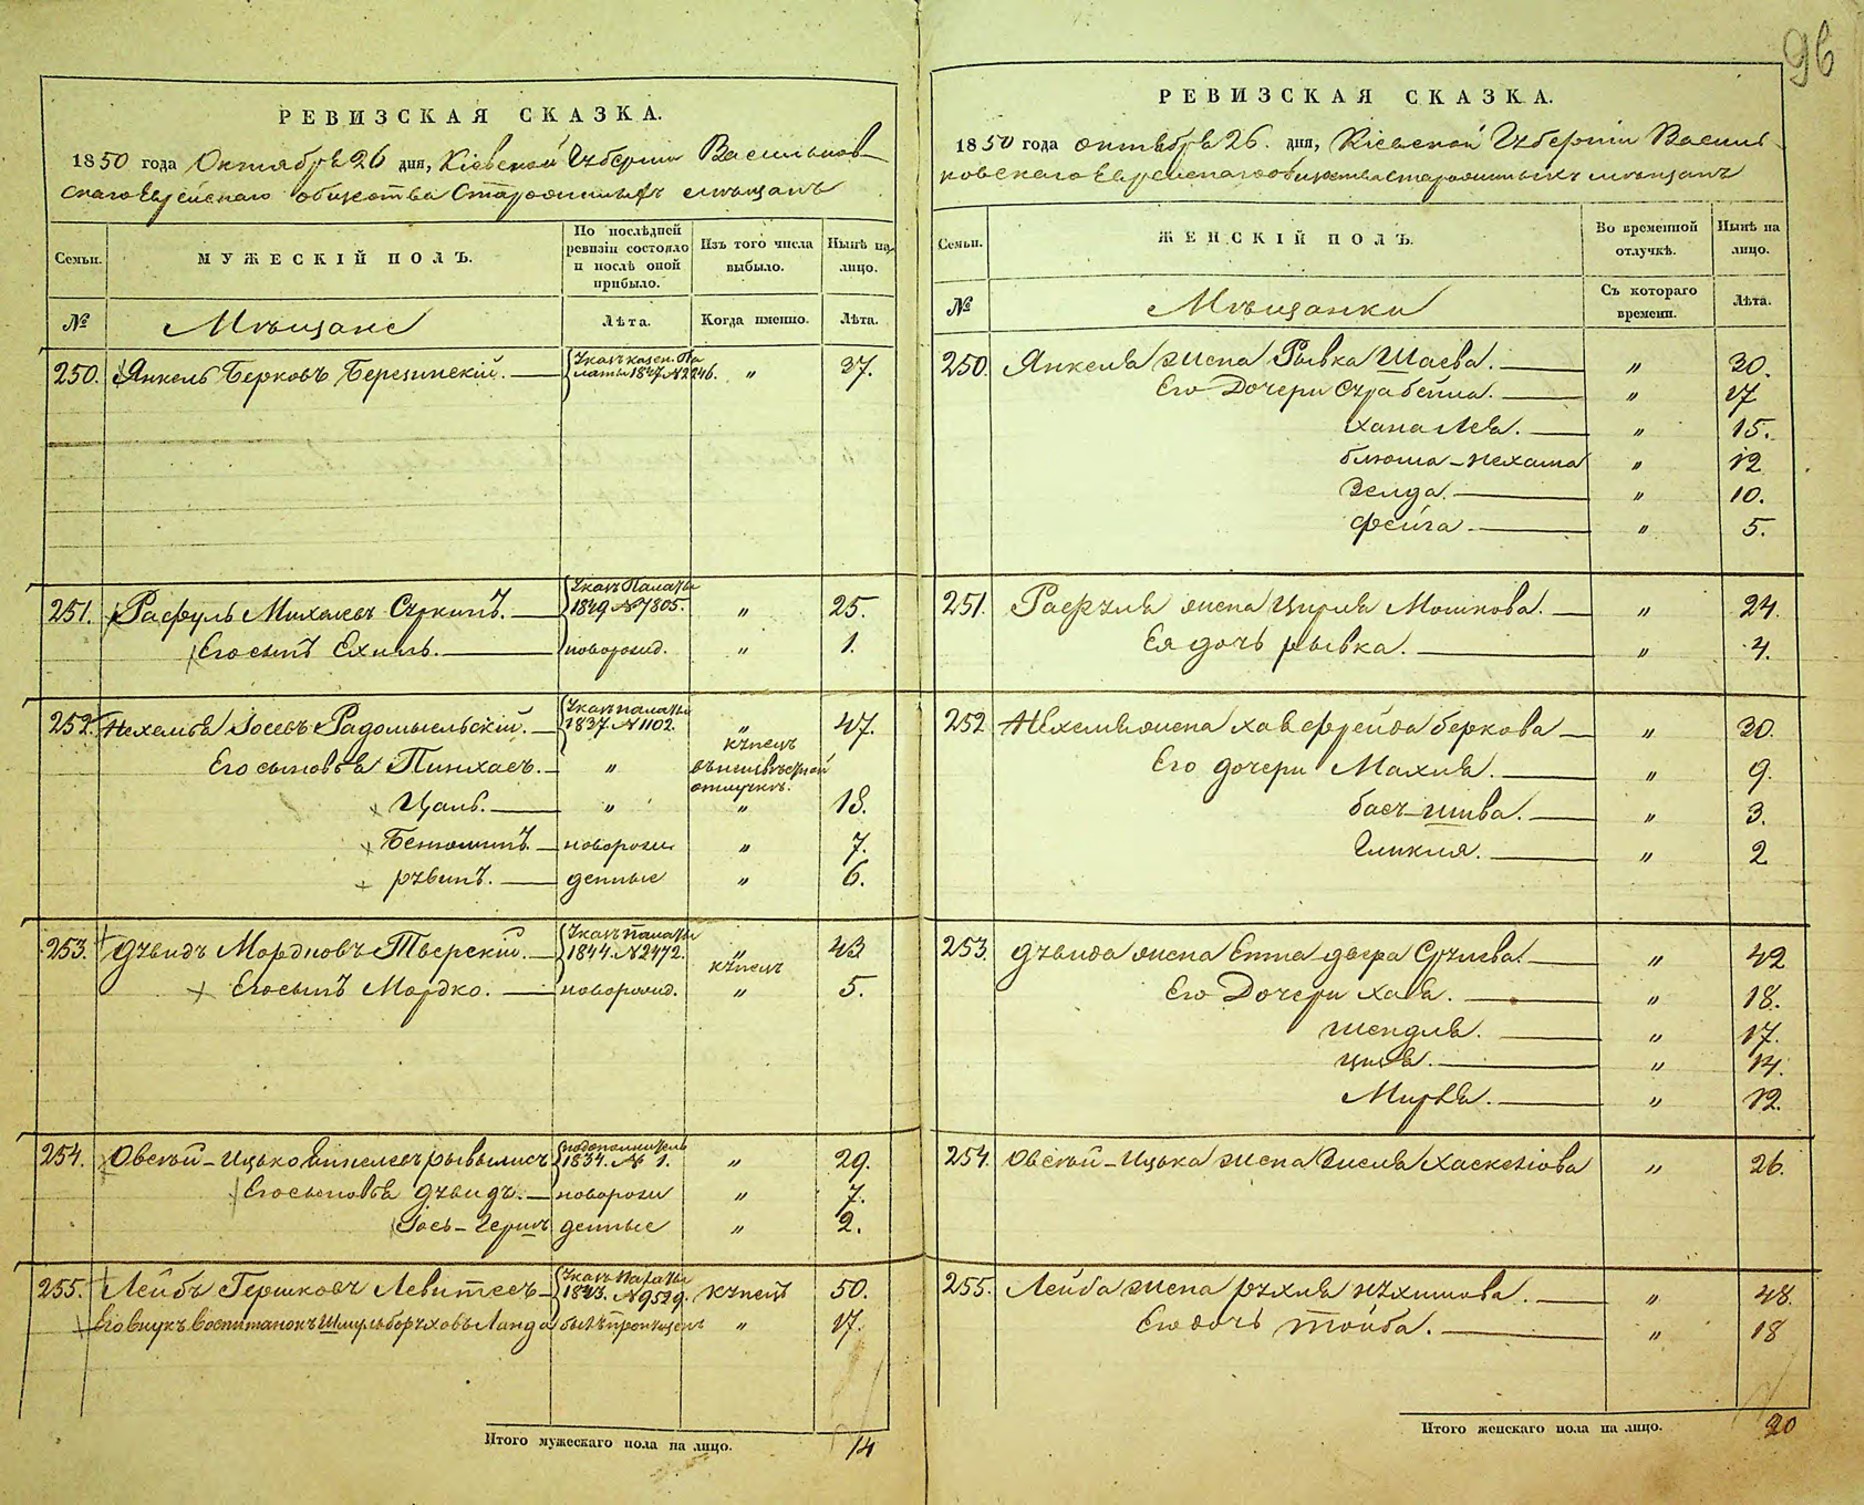 96
РЕВИЗСКАЯ СКАЗКА.
1850 года Октября 26 дня, Кіевской Губерніи Васильков-
скаго Еврейскаго общества Старожилыхъ мѣщанъ
Семьи.
МУЖЕСКІЙ ПОЛЪ.
По послѣдней ревизіи состояло и послѣ оной прибыло.
Изъ того числа выбыло.
Нынѣ на лицо.
№
Мѣщане
Лѣта.
Когда именно.
Лѣта.
250. Янкель Берковъ Березинскій. Указъ казен. Палаты 1847 №2246. " 37.
251. Рафуль Михелевъ Суркинъ. Указъ Палаты 1849 №7805. " 25.
Его сынъ Ехиль. новорожд. " 1.
252. Нехемья Іосевъ Радомысельскій. Указъ палаты 1837. №1102. " 47.
купецъ
Его сыновья Пинхасъ. " въ неизвѣстной отлучкѣ.
Цаль. " " 18.
Беніоминъ. новорож " 7.
рувинъ. денные " 6.
253. Дувидъ Мордковъ Тверскій. Указъ палаты 1844. №2472. " 43
купецъ
Его сынъ Мордко. новорожд. " 5.
254. Овсѣй-Ицько 1834. № 1. " 29.
Его сыновья Дувидъ. новорож " 7.
Іось-Гершъ денные " 2.
255. Лейбъ Гершковъ Левитес Указъ Палаты 1843. №9529. купецъ 50.
Его внукъ воспитанокъ Шмуль борухов Ланда былъ пропущенъ " 17.
Итого мужескаго пола на лицо. 14
РЕВИЗСКАЯ СКАЗКА.
1850 года октября 26. дня, Кіевской Губерніи Василь-
ковскаго Еврейскаго общества старожилыхъ мѣщанъ
Семьи.
ЖЕНСКІЙ ПОЛЪ.
Во временной отлучкѣ.
Нынѣ на лицо.
№
Мѣщанки
Съ котораго времени.
Лѣта.
250. Янкеля жена Рывка Шаева. " 30.
Его Дочери Сурабейла. " 17
Хана Лея. " 15.
блюма-нехама " 12
Зелда. " 10.
фейга. " 5.
251. Рафуля жена Цирля Мошкова. " 24.
Ея дочь рывка. " 4.
252 Нехемья жена хав фрейда беркова " 30.
Его дочери Малия. " 9.
бася-шива. " 3.
Гликля. " 2
253. Дувида жена Етта двера Срулева " 42
Его Дочери хава. " 18.
шендля. " 17.
ципа. " 14.
Миръя. " 12.
254. Овсѣй-Ицька жена Зисля Хаскелова " 26.
255. Лейба жена рухля нухимова. " 48.
Его дочь тойба. " 18
Итого женскаго пола на лицо. 20